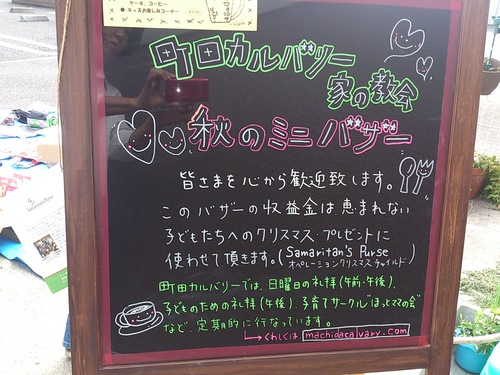 ケーキ、コーヒー
町田カルバリー
家の教会
秋のミニバザー
皆さまを心から歓迎致します。
このバザーの収益金は恵まれない
子どもたちへのクリスマス・プレゼントに
使わせて頂きます。(Samaritan's Purse
オペレーションクリスマスチャイルド)
町田カルバリーでは、日曜日の礼拝(午前・午後)、
子どものための礼拝(午後)、子育てサークル"ほっとママの会"
など、定期的に行なっています。
くわしくは machidacalvary.com